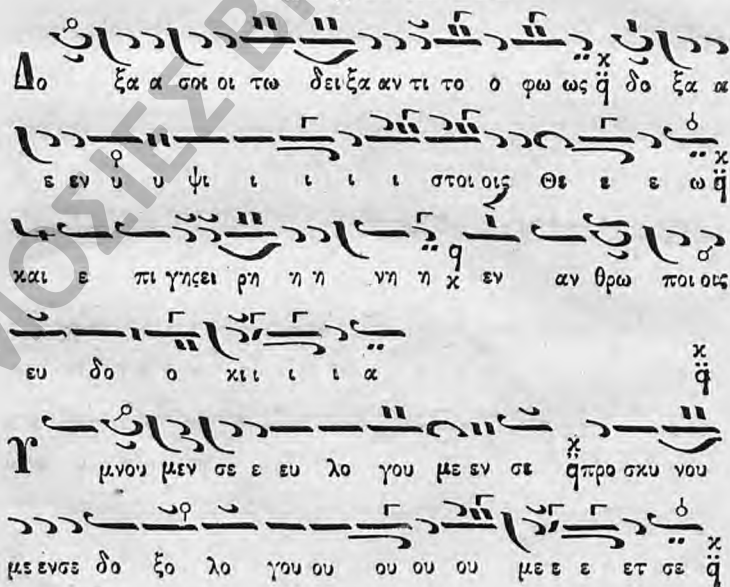 Δο ξα α σοι οι τω δει ξα αν τι το ο φω ως δο ξα α
ε εν υ υ ψι ι ι ι ι ι στοι οις Θε ε ε ω
και ε πι γης ει ρη η η νη η εν αν θρω ποι οις
ευ δο ο κι ι ι ι α
Υ μνου μεν σε ε ευ λο γου με εν σε προ σκυ νου
με εν σε δο ξο λο γου ου ου ου ου με ε ε ετ σε